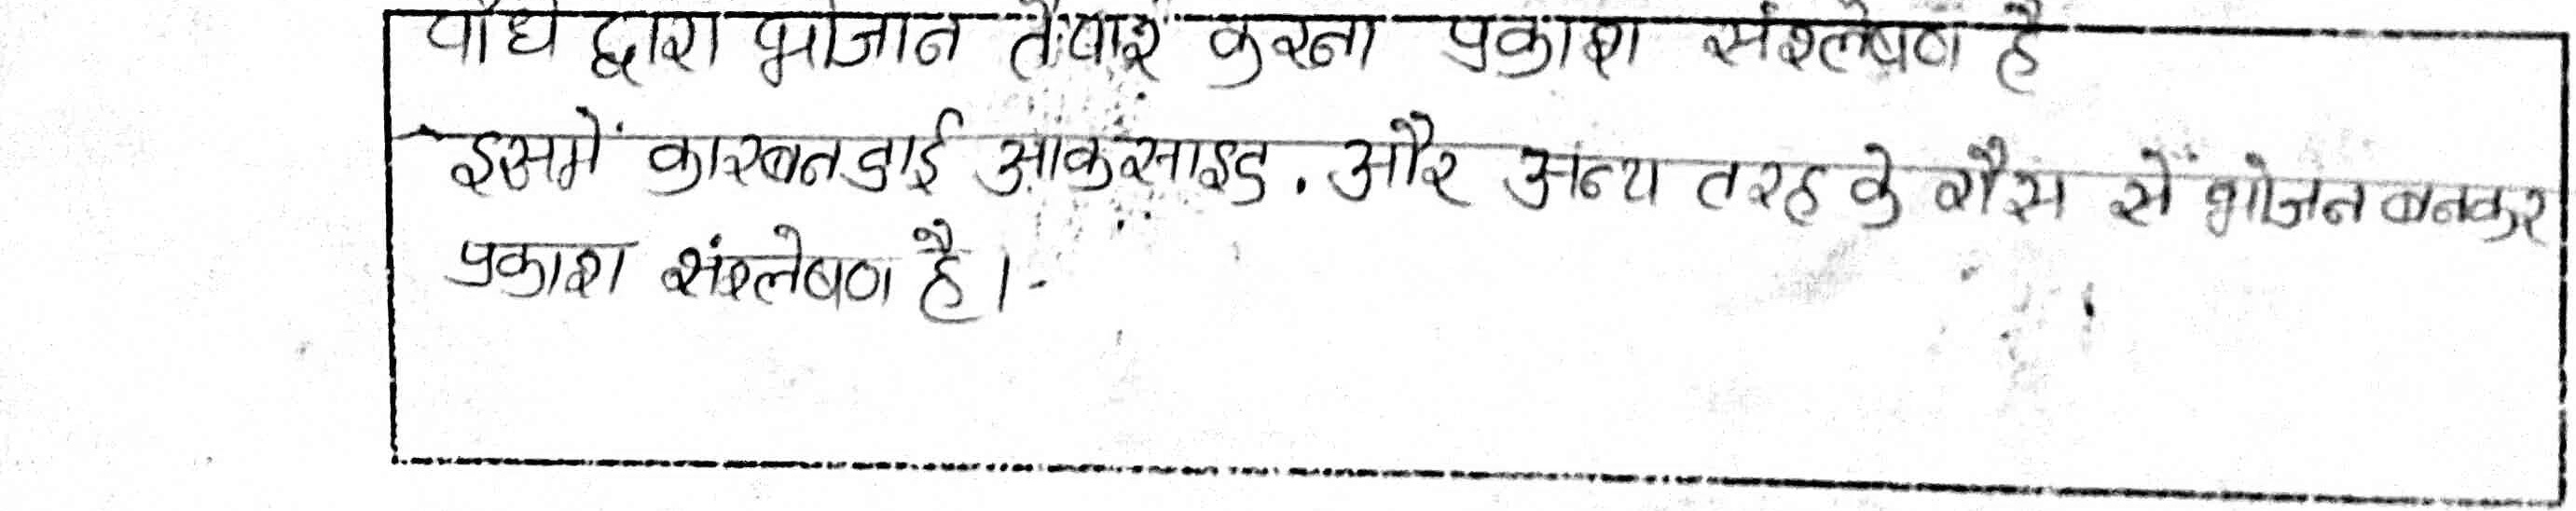 पौधे द्वारा भोजान तैयार करना प्रकाश संश्लेषण है
इसमें कारबन डाई आकसाइड. और अन्य तरह के गैस से भोजन बनकर
प्रकाश संश्लेषण है।